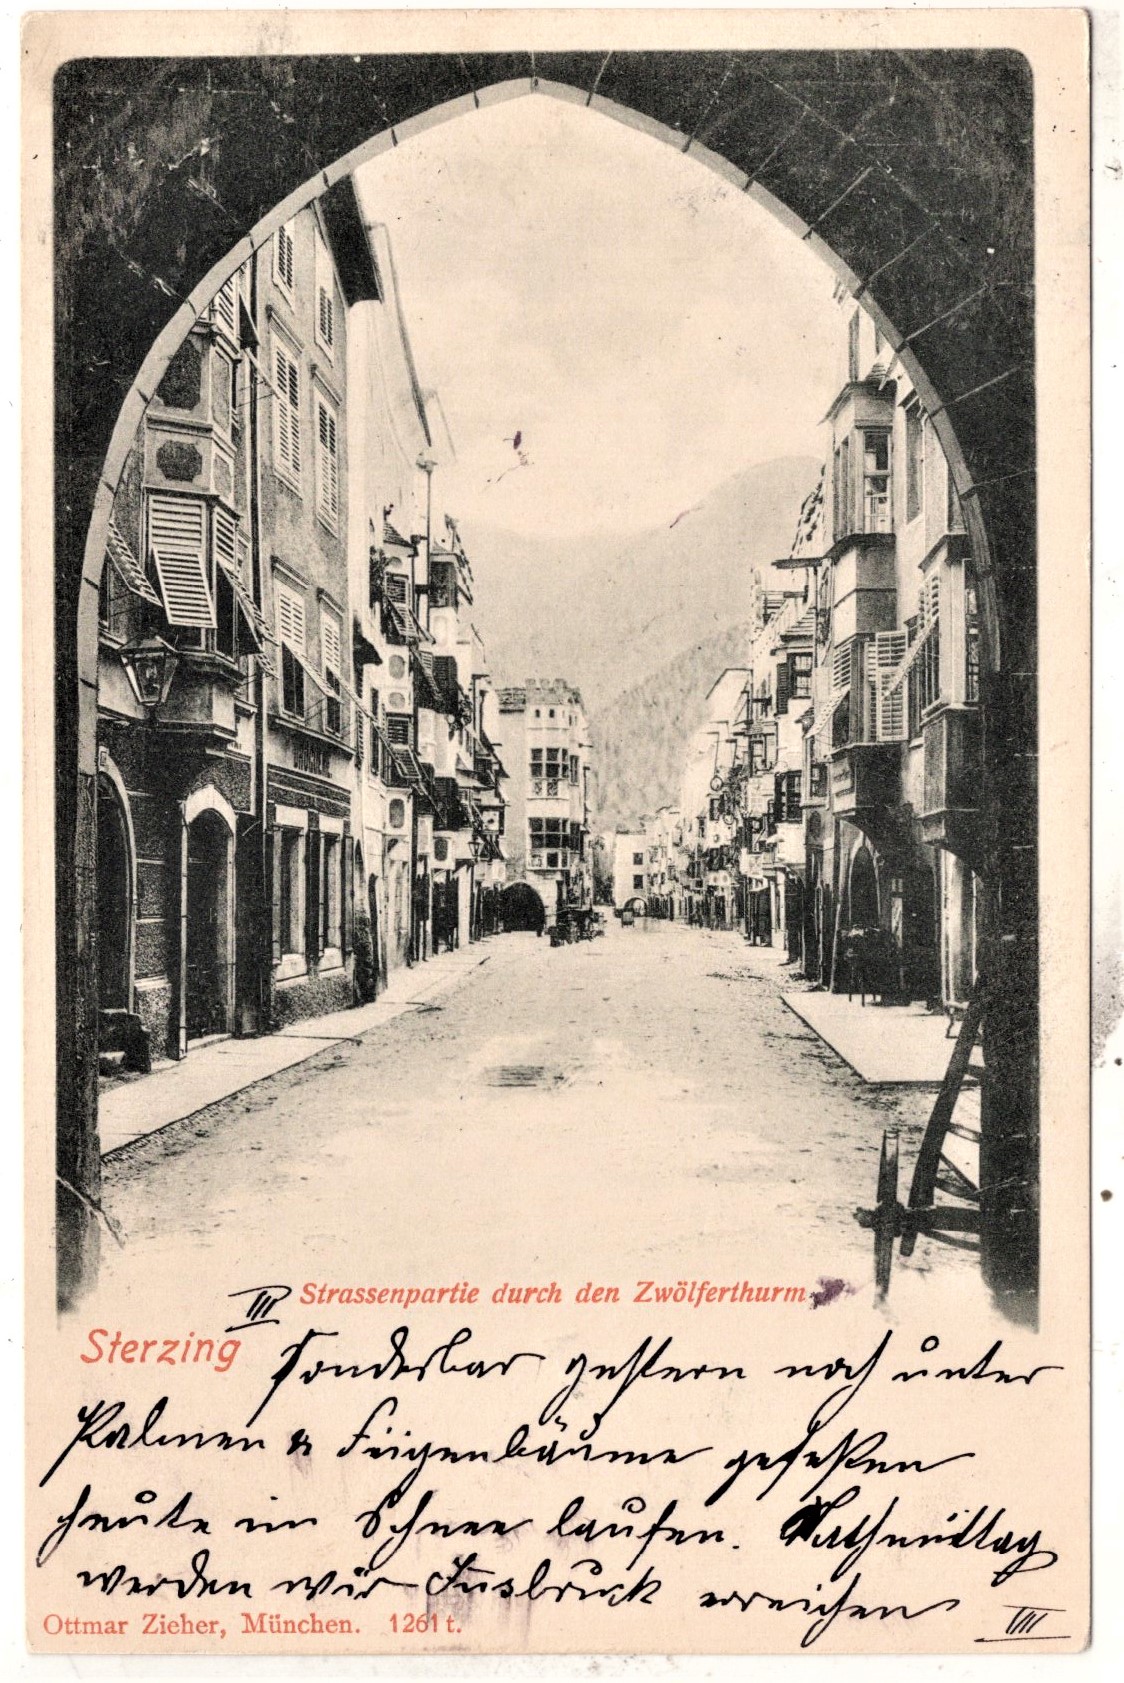 III Strassenpartie durch den Zwölferthurm
Sterzing
Sonderbar gestern noch unter
Palmen & Feigenbäume geseßen
heute im Schnee laufen. Nachmittag
werden wir Insbruck erreichen
Ottmar Zieher, München. 1261 t.
VIII